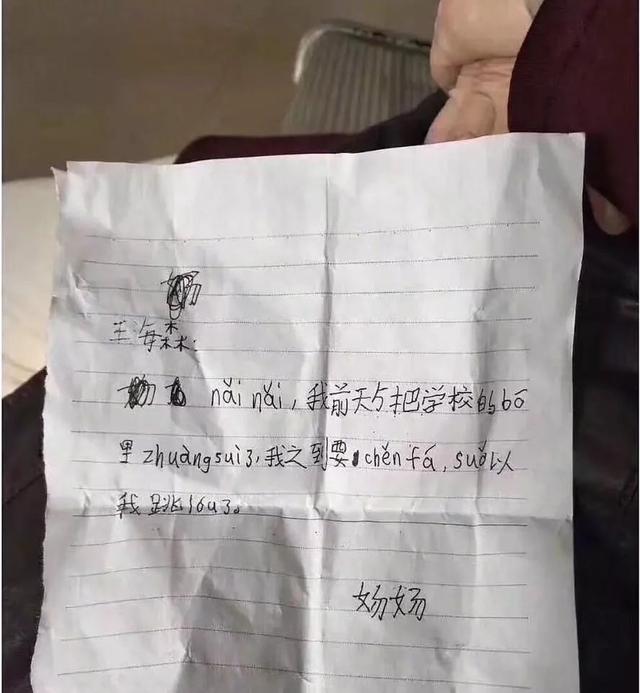 王海森:
nǎi nǎi,我前天与把学校的bō
里zhuàngsuì3,我之到要chěnfá,suǒ以
我跳lóu3。
妫妫